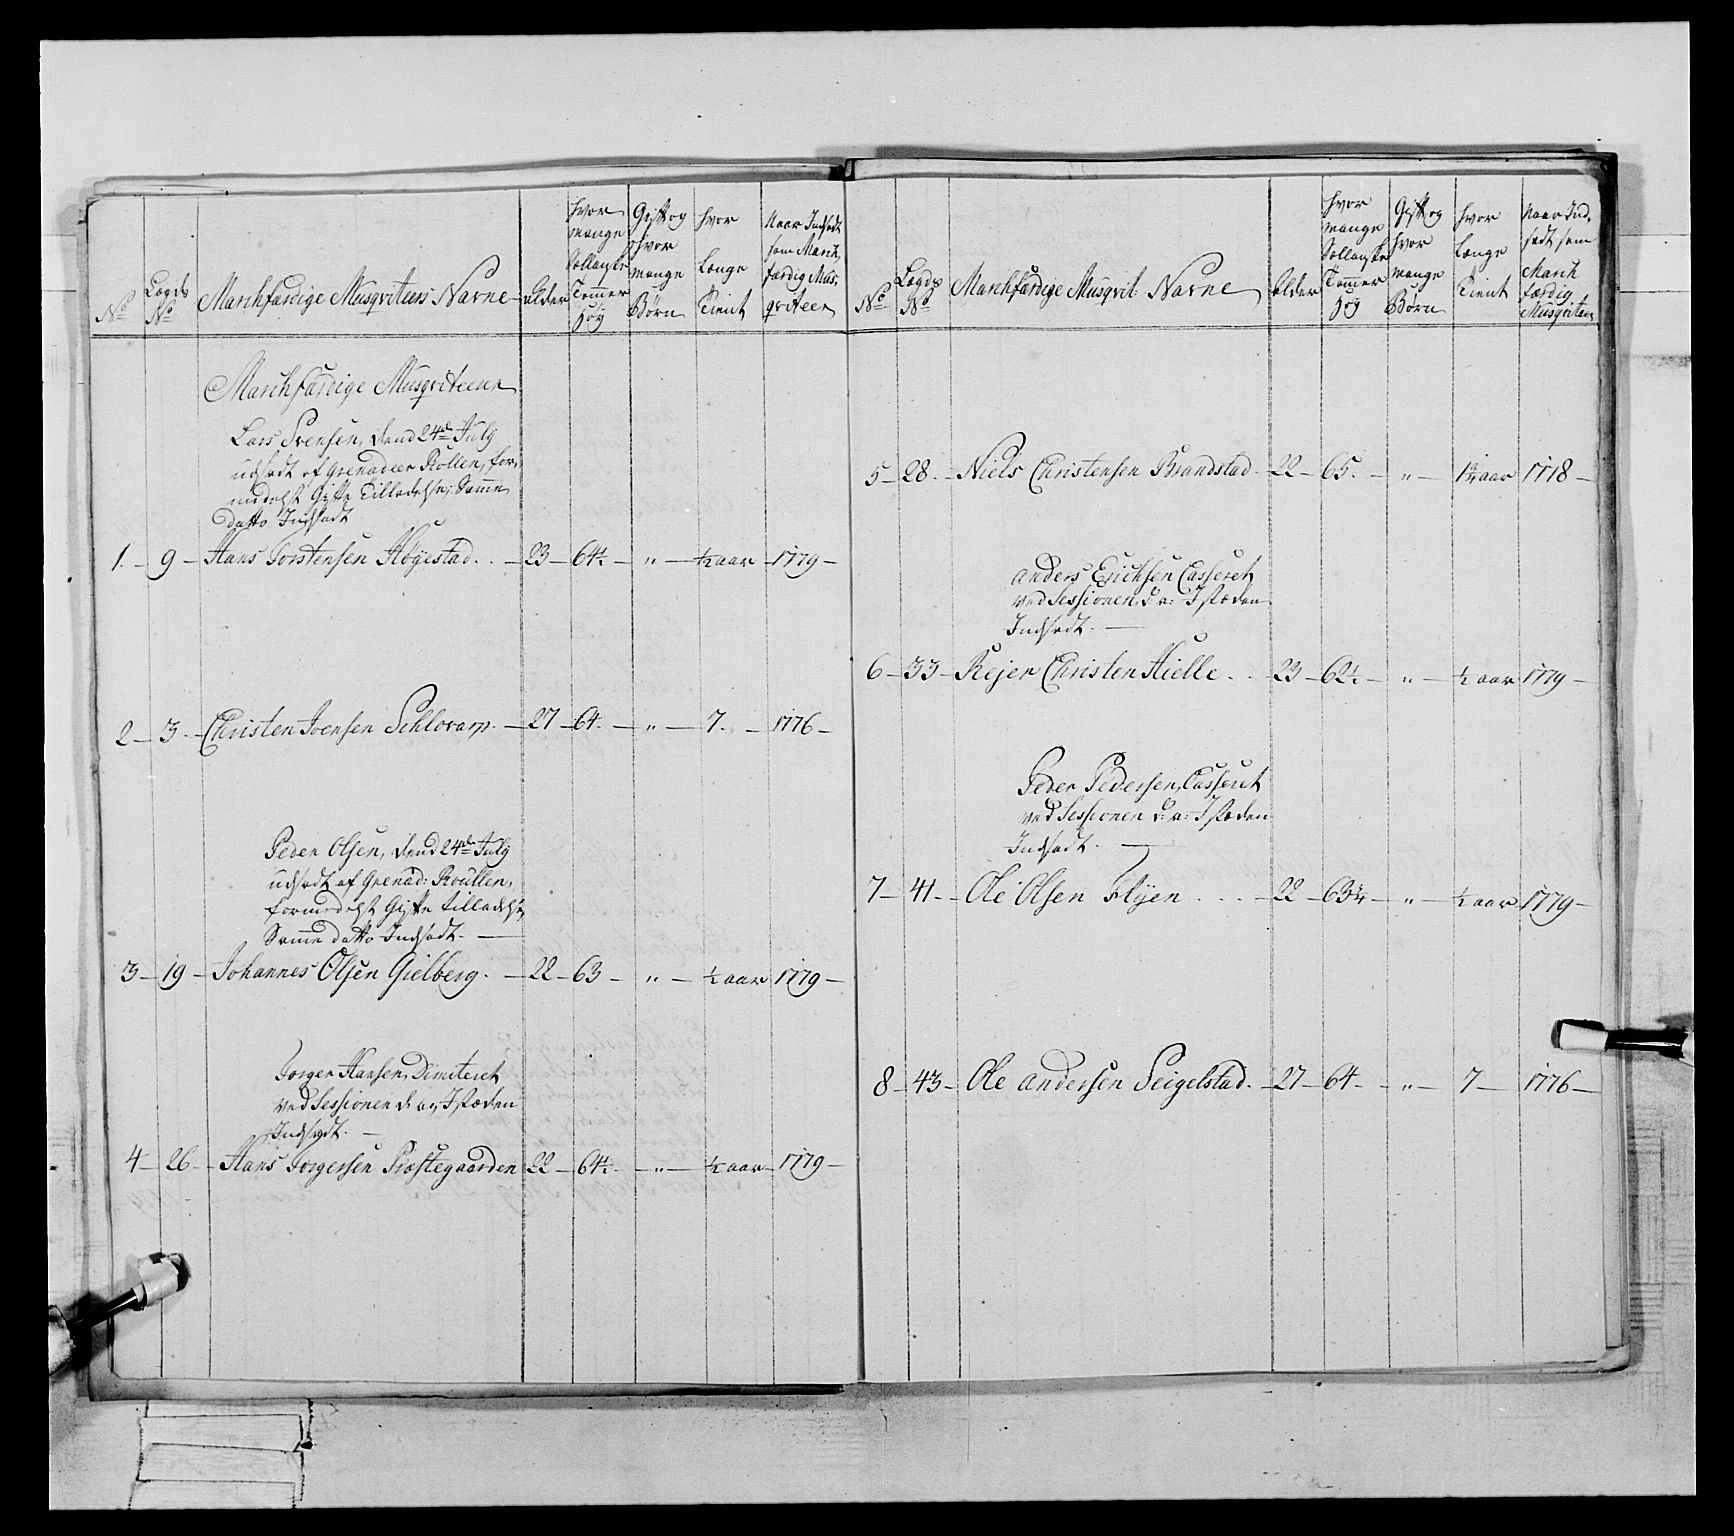 No
Lægds No
Marchfærdige Musqviteers Navne
Alder
hvor mange Sollanske Tommer høy
Gift og hvor mange Børn
hvor Længe Tient
Naar Indsadt som March færdig Musqviteer
Marchfærdige Musqviteerer
Lars Svensen, dend 24de July
udsadt af Grenadeer Rollen, for,
medelst Gifte Tilladelse; Samme
datto Indsadt
1. 9 Hans Torstensen Høgestad. 23 64½ " ½ aar 1779
2 3. Christen Joensen Schlovarp. 27 64. " 7. 1776
Peder Olsen, dend 24de July
udsadt af Grenad: Roullen,
formedelst Gifte tilladelse,
Samme datto Indsadt.
3 19 Johannes Olsen Gielberg. 22 63 " ½ aar 1779
Torger Hansen, Dimiteret
ved Sessionen d: a: I stæden
Indsadt.
4 26. Hans Torgersen Præstegaarden 22 64½. " ½ aar 1779
No
Lægds No
Marchfærdige Musqvit Navne
Alder
hvor mange Sollanske Tommer høy
Gift og hvor mange Børn
hvor Længe Tient
Naar Ind, sadt som March færdig Musqviteer
5 28. Niels Christensen Brandstad. 22 65. " 1¾ aar 1778
Anders Erichsen Casseret
ved Sessionen d: a: I stæden
Indsadt.
6 33 Rejer Christen Hielle. 23 62½. " ½ aar 1779
Peder Pedersen, Casseret
ved Sessionen d: a: I stæden
Indsadt.
7 41. Ole Olsen Flyen 22 63¼ " ½ aar 1779
8 43 Ole Andersen Seigelstad. 27 64 " 7 1776